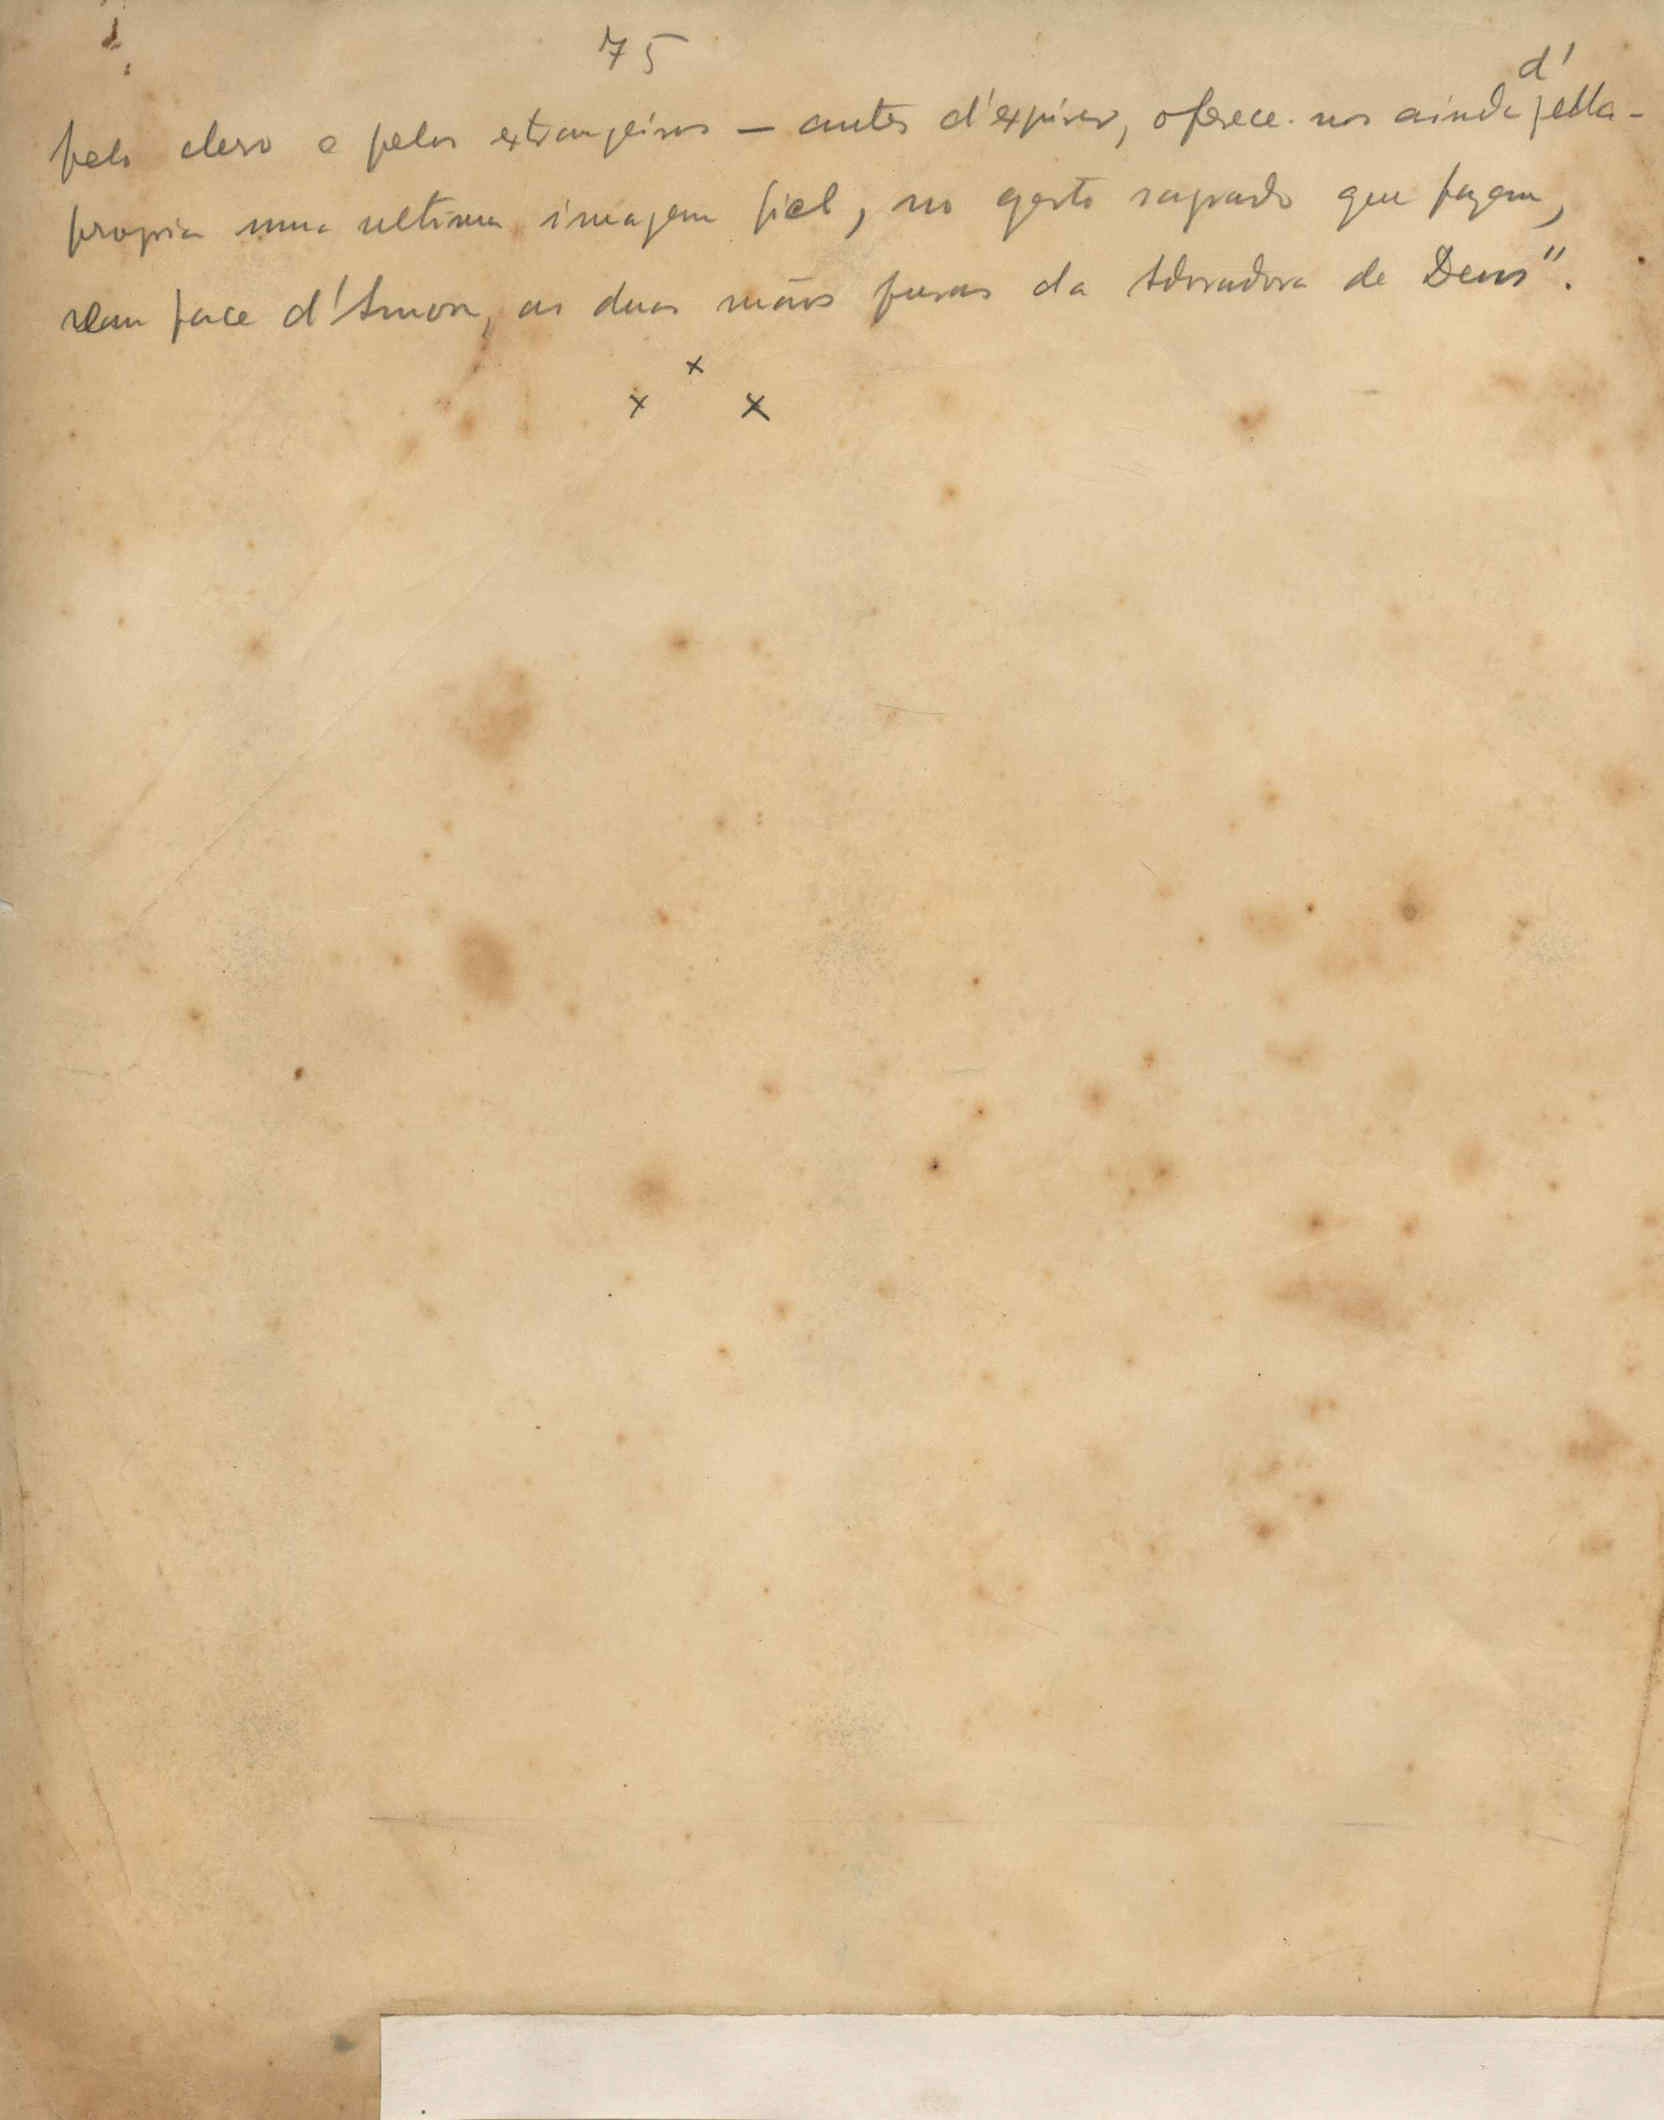 75
pelo clero e pelos extrangeiros — antes d'expirar, oferece-nos ainda d'ella-
propria uma ultima imagem fiel, no gesto sagrado que fazem,
em face d'Amon, as duas mãos puras da Adoradora de Deus".
x
x x